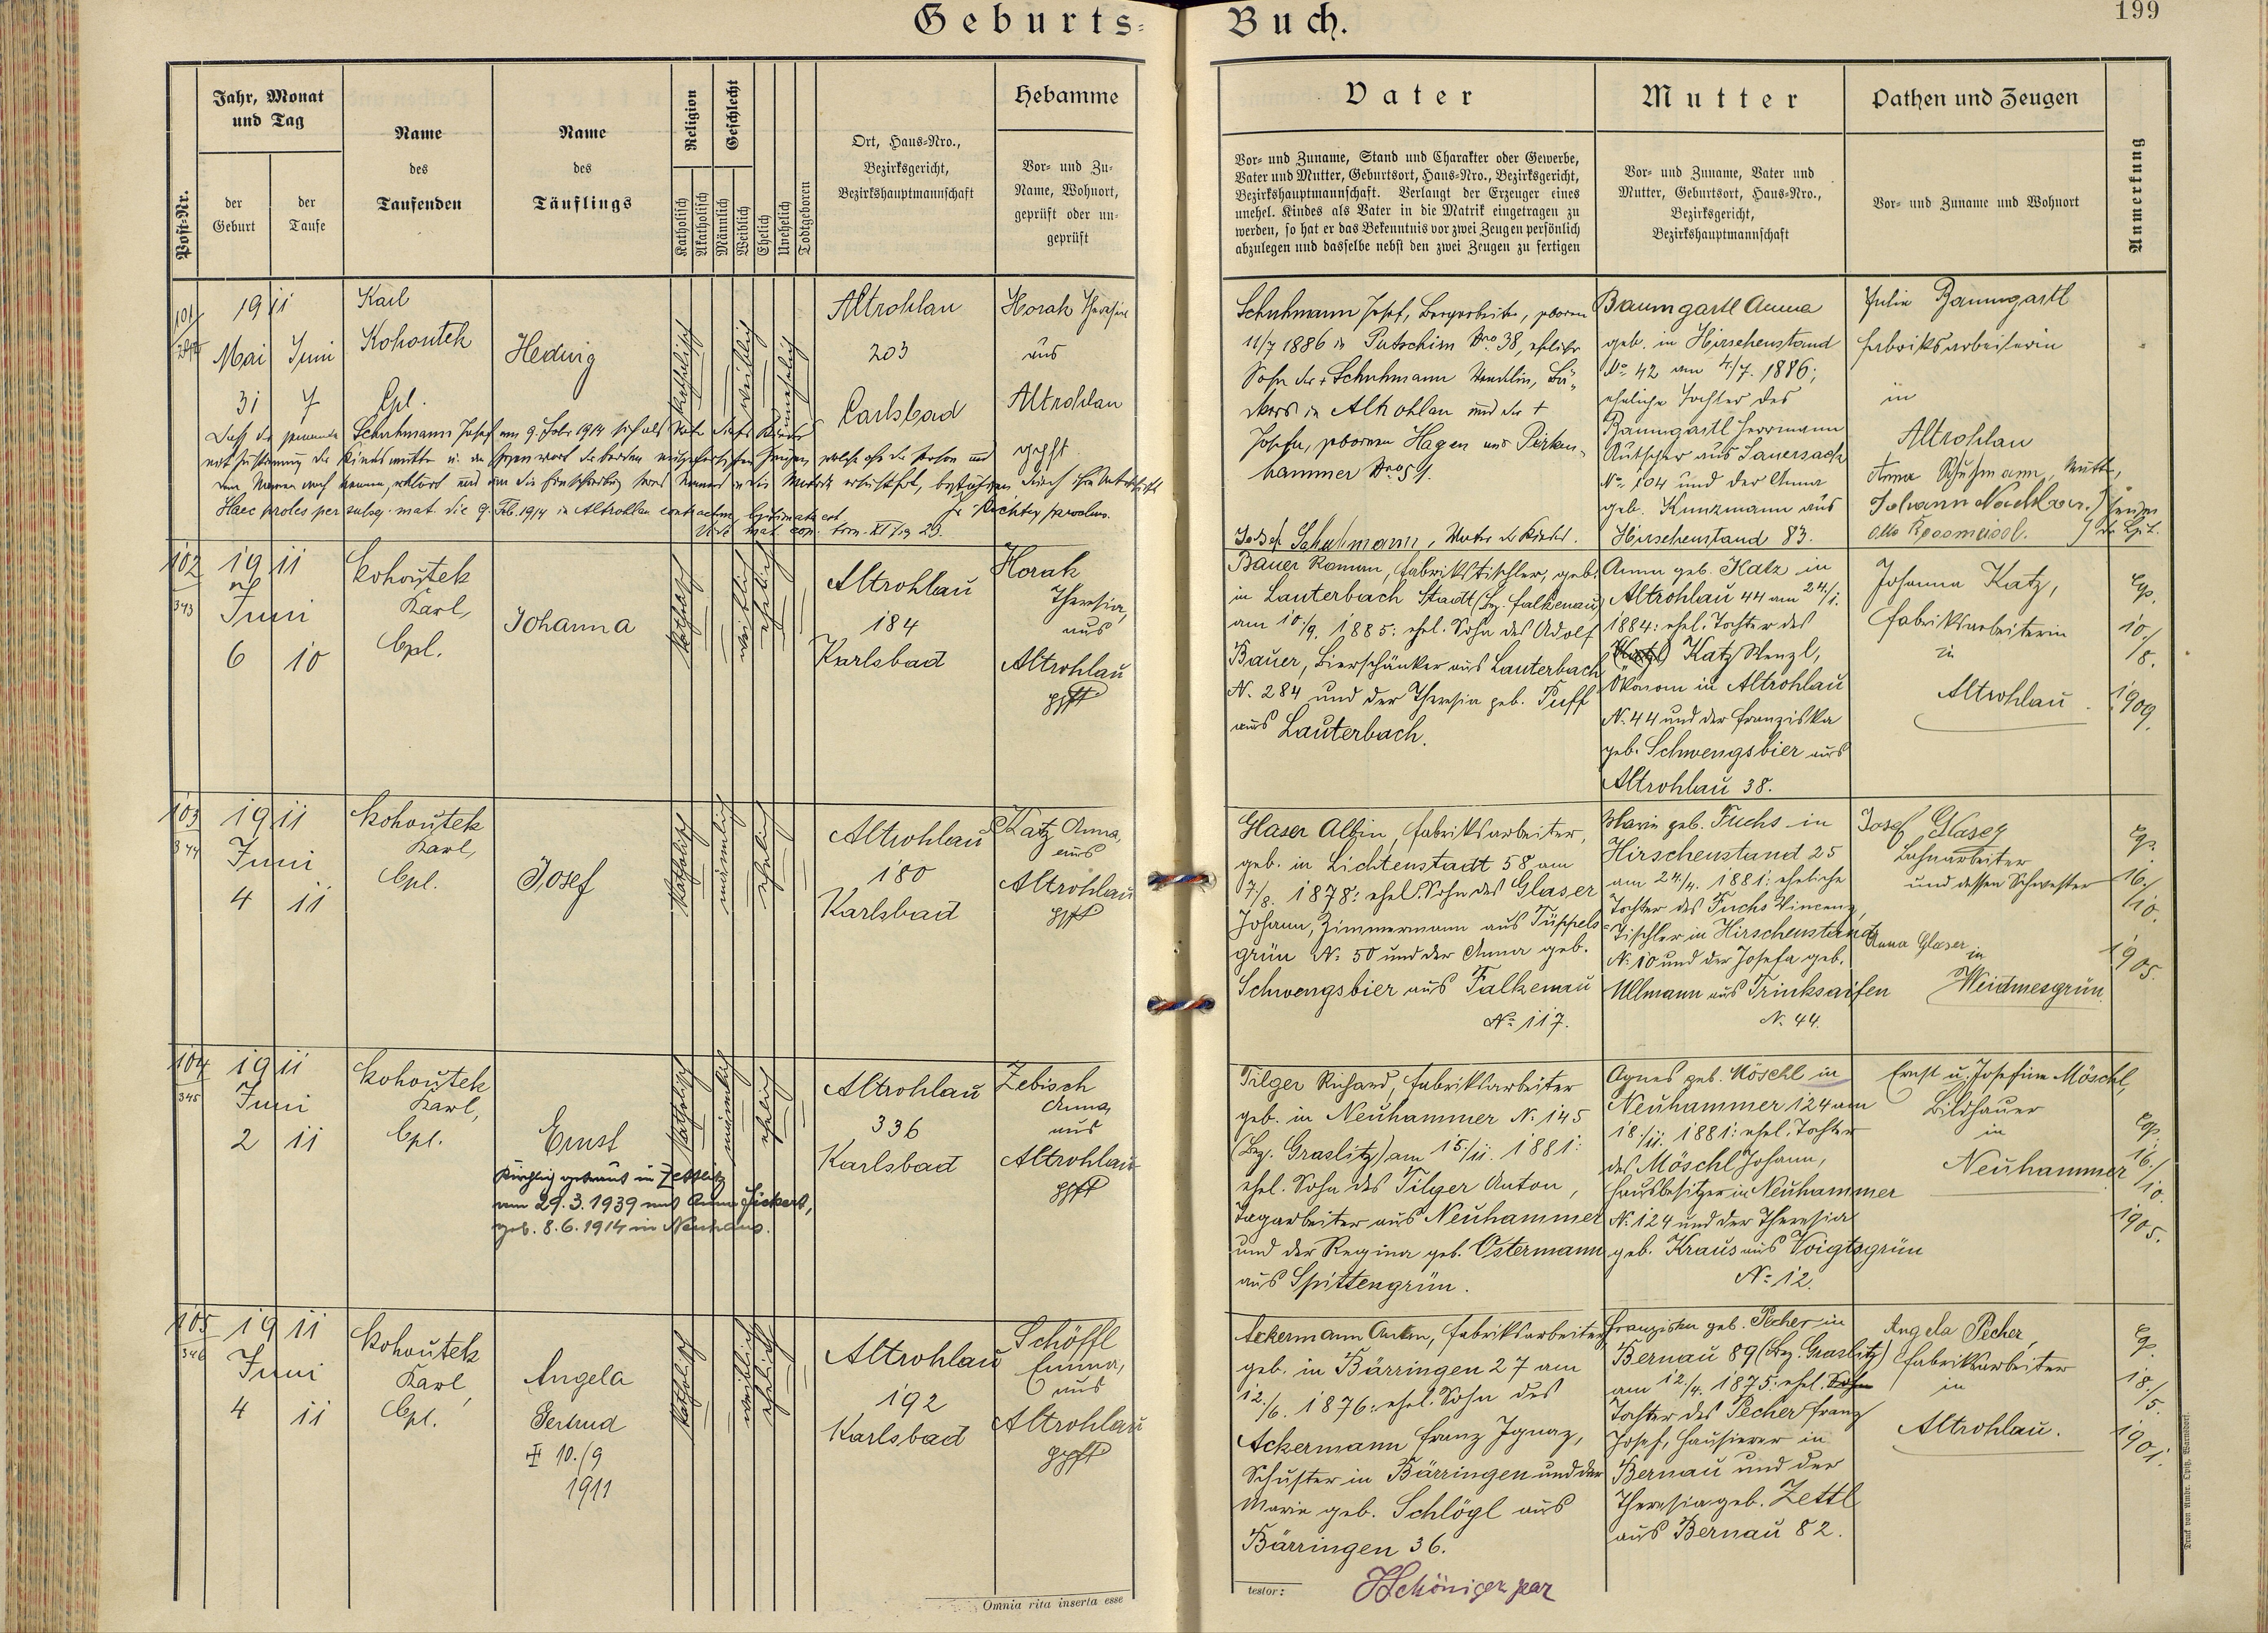 Geburts-Buch.
199
Post-Nr.
Jahr, Monat
und Tag
der
Geburt
der
Taufe
Name
des
Taufenden
Name
des
Täuflings
Religion
Katholisch
Akatholisch
Geschlecht
Männlich
Weiblich
Ehelich
Unehelich
Todtgeboren
Ort, Haus-Nro.,
Bezirksgericht,
Bezirkshauptmannschaft
Hebamme
Vor- und Zu-
Name, Wohnort,
geprüft oder un-
geprüft
Vater
Vor- und Zuname, Stand und Charakter oder Gewerbe,
Vater und Mutter, Geburtsort, Haus-Nro., Bezirksgericht,
Bezirkshauptmannschaft. Verlangt der Erzeuger eines
unehel. Kindes als Vater in die Matrik eingetragen zu
werden, so hat er das Bekenntnis vor zwei Zeugen persönlich
abzulegen und dasselbe nebst den zwei Zeugen zu fertigen
Mutter
Vor- und Zuname, Vater und
Mutter, Geburtsort, Haus-Nro.,
Bezirksgericht,
Bezirkshauptmannschaft
Pathen und Zeugen
Vor- und Zuname und Wohnort
Anmerkung
101
1911
Mai Juni
31 7
Karl
Kohoutek
Cpl.
Hedwig
katholisch
weiblich
unehelich
Altrohlau
203
Carlsbad
Horak Theresia
aus
Altrohlau
gepft
Schuhmann Josef, Bergarbeiter, geboren
11/7 1886 in Putschirn Nro 38, ehlicher
Sohn des + Schuhmann Wendlin,
in Altrohlau und der +
Josefa, geborenen Hagen aus Pirken-
hammer Nro 51.
Baumgartl Anna
geb. in Hirschenstand
No 42 am 4/7. 1886;
eheliche Tochter des
Baumgartl Herrmann
Kutscher aus Sauersack
No 104 und der Anna
geb. Kunzmann aus
Hirschenstand 83.
Julie Baumgartl
Fabriksarbeiterin
in
Altrohlau
Schuhmann Josef am 9. Febr 1914 sich als Vater dieses Kindes
Haec proles per subseq. mat. die 9. Feb. 1914 in Altrohlau contractum legitimata est.
Josef Schuhmann, Vater d. Kindes.
Anna Schuhmann, Mutter,
102
343
1911
Juni
6 10
Kohoutek
Karl,
Cpl.
Johanna
katholisch
weiblich
ehelich
Altrohlau
184
Karlsbad
Horak
Theresia,
aus
Altrohlau
gpft
Bauer Roman, Fabrikstischler, geb.
in Lauterbach Stadt (Bez. Falkenau)
am 10./9. 1885: ehel. Sohn des Adolf
Bauer, Bierschänker aus Lauterbach
N. 284 und der Theresia geb. Puff
aus Lauterbach.
Anna geb. Katz in
Altrohlau 44 am 24./1.
1884: ehel. Tochter des
Katz Wenzl,
Ökonom in Altrohlau
N. 44 und der Franziska
geb. Schwengsbier aus
Altrohlau 38.
Johanna Katz,
Fabriksarbeiterin
in
Altrohlau
Cop.
10./
/8.
1909.
103
344
1911
Juni
4 11
Kohoutek
Karl,
Cpl.
Josef
katholisch
männlich
ehelich
Altrohlau
180
Karlsbad
Katz Anna,
aus
Altrohlau
gpft
Glaser Albin, Fabriksarbeiter,
geb. in Lichtenstadt 58 am
7./8. 1878: ehel. Sohn des Glaser
Johann, Zimmermann aus Tüppels-
grün No 50 und der Anna geb.
Schwengsbier aus Falkenau
No 117.
Marie geb. Fuchs in
Hirschenstand 25
am 24./4. 1881: eheliche
Tochter des Fuchs Vincenz,
Tischler in Hirschenstand
No 10 und der Josefa geb.
Ullmann aus Trinksaifen
N. 44.
Josef Glaser
Bahnarbeiter
und dessen Schwester
Anna Glaser
in
Weidmesgrün.
Cop.
16./
/10.
1905.
104
345
1911
Juni
2 11
Kohoutek
Karl,
Cpl.
Ernst
Kirchlich getraut in Zettlitz
am 29.3.1939 mit Anna Fickert,
geb. 8.6.1914 in Neuhaus.
katholisch
männlich
ehelich
Altrohlau
336
Karlsbad
Zebisch
Anna,
aus
Altrohlau
gpft
Tilger Richard, Fabriksarbeiter
geb. in Neuhammer No 145
(Bez. Graslitz) am 15./11. 1881:
ehel. Sohn des Tilger Anton,
Tagarbeiter aus Neuhammer
und der Regina geb. Ostermann
aus Spittengrün.
Agnes geb. Möschl in
Neuhammer 124 am
18./11. 1881: ehel. Tochter
des Möschl Johann,
Hausbesitzer in Neuhammer
No 124 und der Theresia
geb. Kraus aus Voigtsgrün
No 12.
Ernst u. Josefine Möschl,
Bildhauer
in
Neuhammer
Cop.
16./
/10.
1905.
105
346
1911
Juni
4 11
Kohoutek
Karl,
Cpl.
Angela
Gertrud
10./9
1911
katholisch
weiblich
ehelich
Altrohlau
192
Karlsbad
Schöffl
Emma,
aus
Altrohlau
gpft
Ackermann Anton, Fabriksarbeiter
geb. in Bärringen 27 am
12./6. 1876: ehel. Sohn des
Ackermann Franz Ignaz,
Schuster in Bärringen und der
Marie geb. Schlögl aus
Bärringen 36.
Franziska geb. Pecher in
Bernau 89 (Bez. Graslitz)
am 12./4. 1875: ehel. Sohn
Tochter des Pecher Franz
Josef, Hausierer in
Bernau und der
Theresia geb. Zettl
aus Bernau 82.
Angela Pecher,
Fabriksarbeiter
in
Altrohlau.
Cop.
18./
/5.
1901.
Omnia rita inserta esse
testor:
Druck von Ambr. Opitz, Warnsdorf.